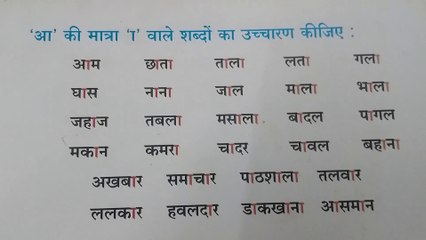 'आ' की मात्रा 'ा' वाले शब्दों का उच्चारण कीजिए :
आम छाता ताला लता गला
घास नाना जाल माला भाला
जहाज तबला मसाला. बादल पागल
मकान कमरा चादर चावल बहाना
अखबार समाचार पाठशाला तलवार
ललकार हवलदार डाकखाना आसमान